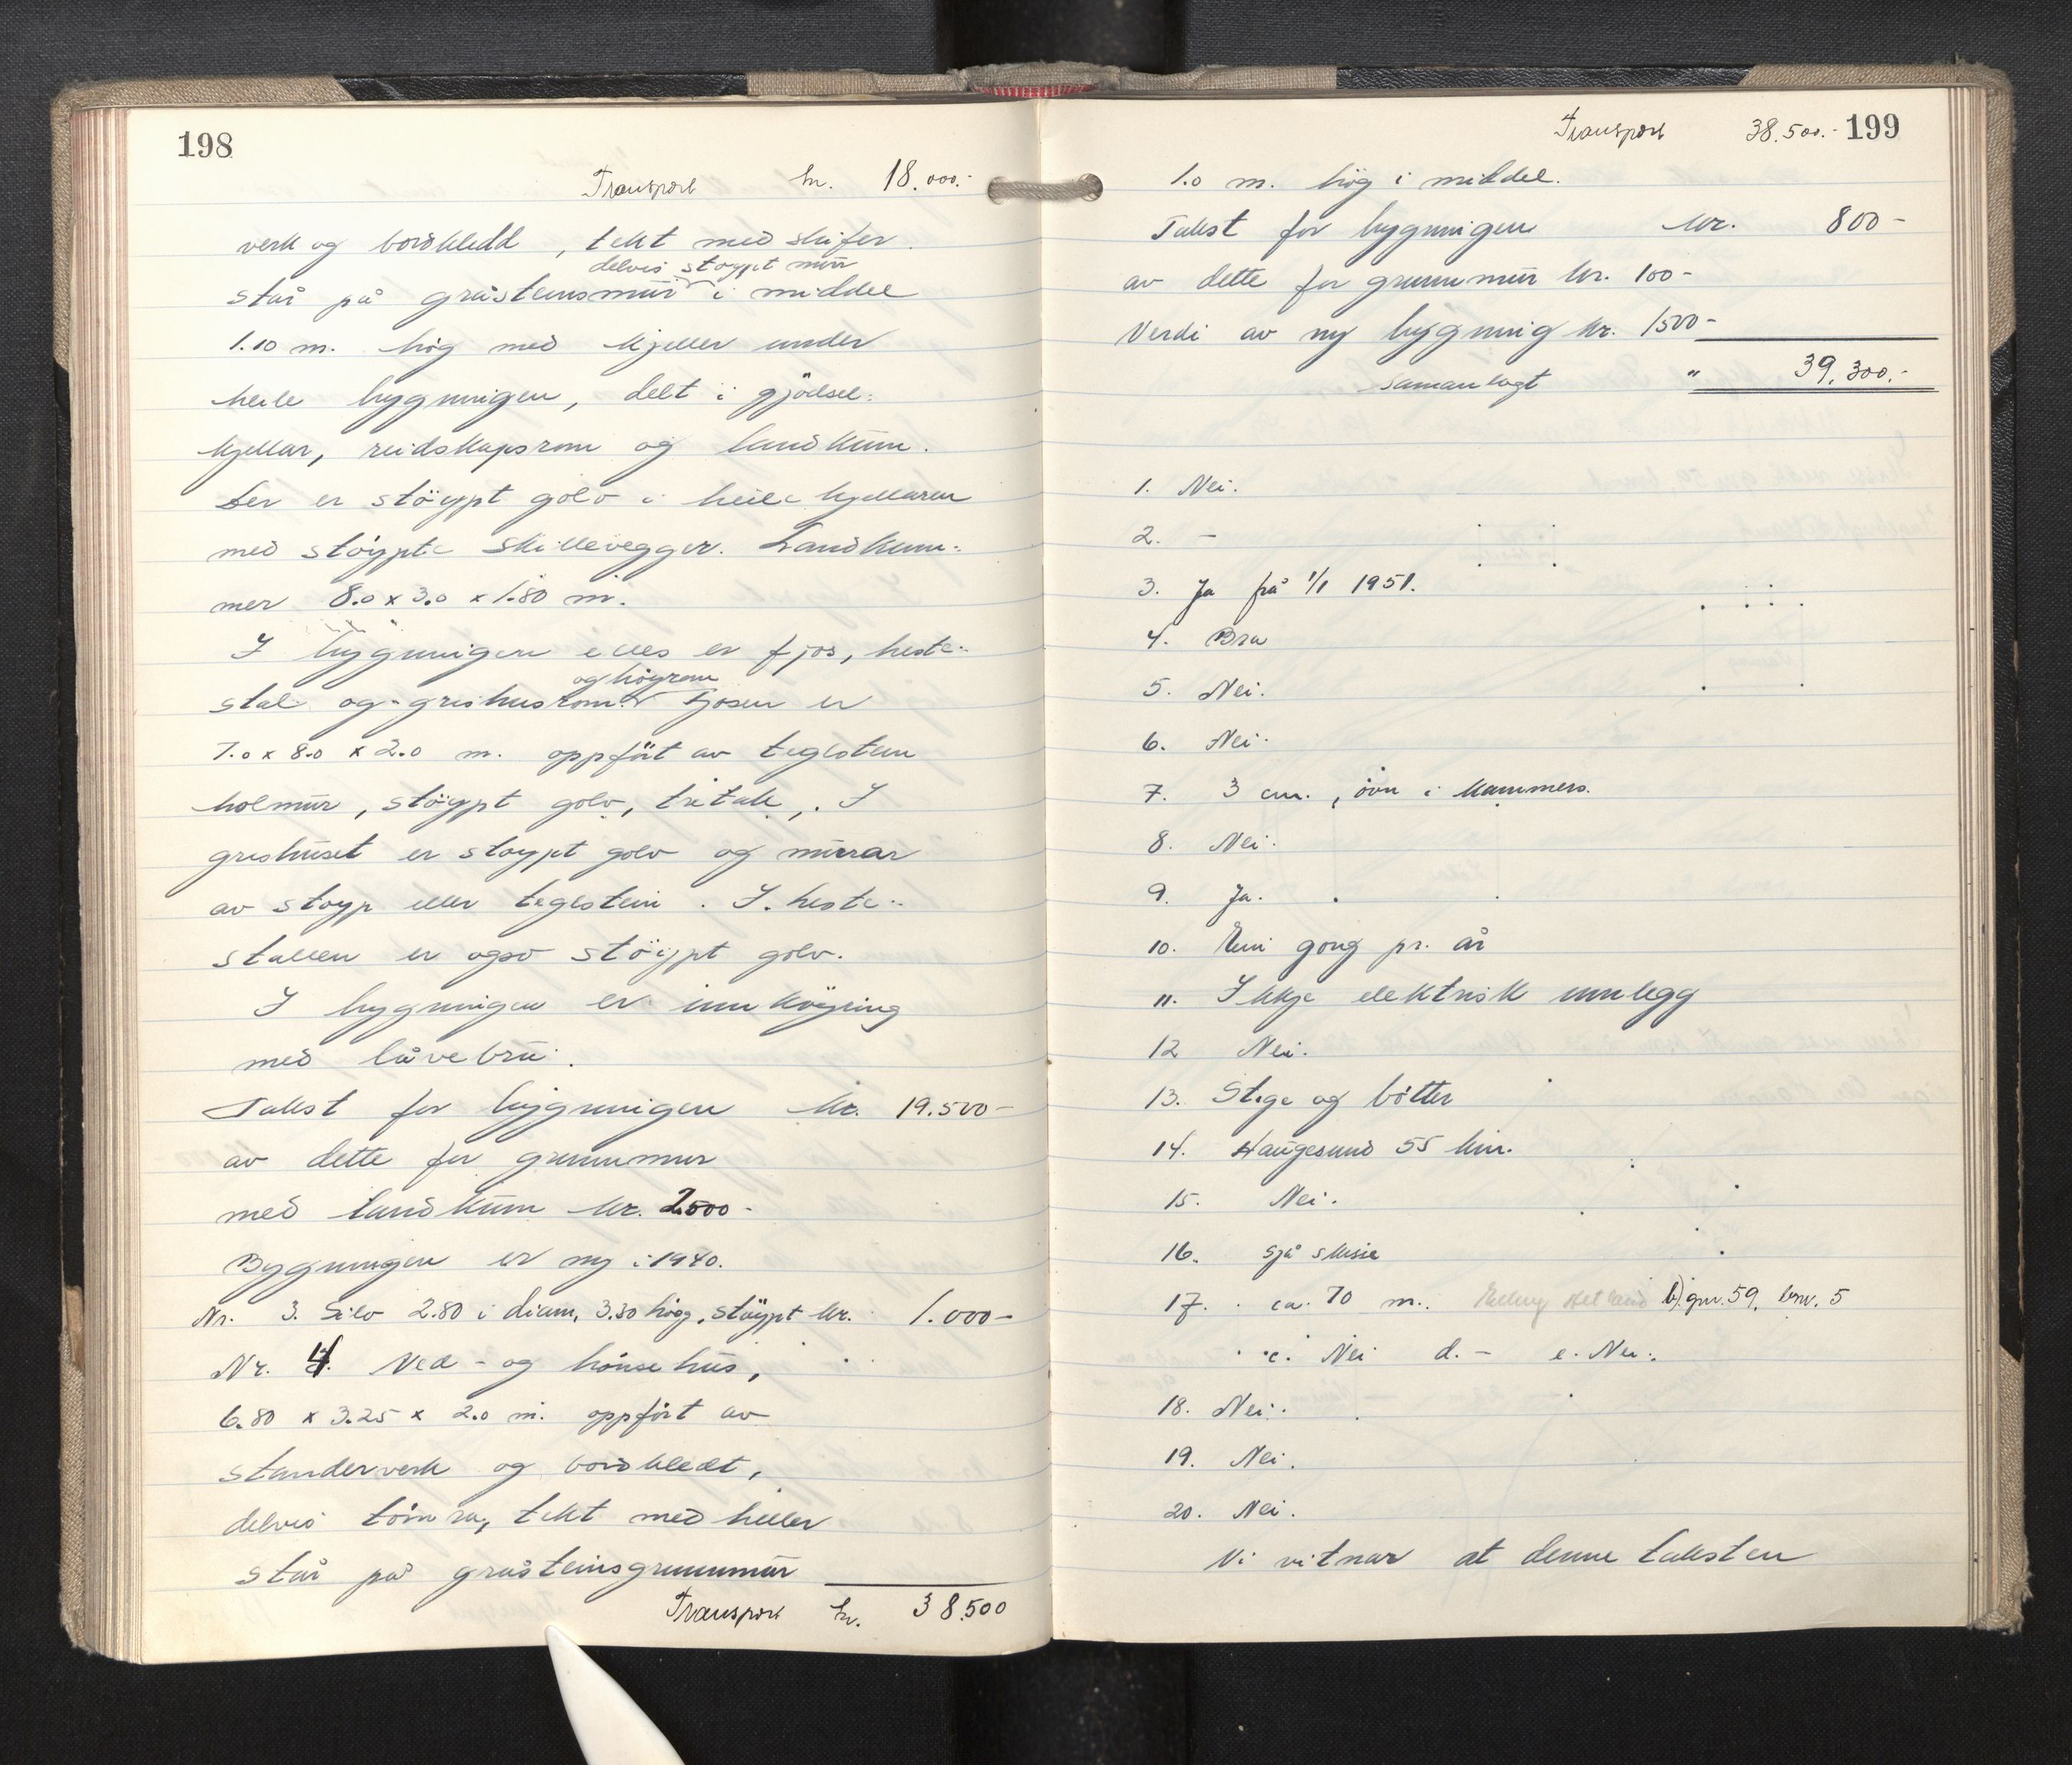 198
Transport kr. 18.000.-
verk og bordkledd, tekt med skifer.
delvis støypt mur
står på gråsteinsmur i middel
1.10 m. høg med kjeller under
heile bygningen, delt i gjødsel-
kjellar, reidskapsrom og landkum.
Der er støypt golv i heile kjellaren
med støypte skillevegger. Landkum-
mer 8.0 x 3.0 x 1.80 m.
I bygningen elles er fjos, heste-
og høyrom
stal og grishusrom. Fjosen er
7.0 x 8.0 x 2.0 m. oppført av teglstein
holmur, støypt golv, tretak. I
grishuset er støypt golv og murar
av støyp eller teglstein. I heste-
stallen er også støypt golv.
I bygningen er innkøyring
med låvebru.
Takst for bygningen kr. 19.500-
av dette for grunnmur
med landkum kr. 2500-
Bygningen er ny i 1940.
Nr. 3. Silo 2.80 i diam, 3.30 høg, støypt kr. 1.000-
Nr. 4. Ved- og hønsehus,
6.80 x 3.25 x 2.0 m. oppført av
standerverk og bordkledt,
delvis tømra, tekt med heller
står på gråsteinsgrunnmur
Transport kr. 38.500
Transport 38.500.- 199
1.0 m. høg i middel.
Takst for bygningen kr. 800-
av dette for grunnmur kr. 100-
Verdi av ny bygning kr. 1500-
samanlagt " 39.300.-
1. Nei.
2. -
3. Ja frå 1/1 1951.
4. Bra
5. Nei.
6. Nei.
7. 3 cm., ovn i kammers.
8. Nei.
9. Ja.
10. Ein gong pr. år
11. Ikkje elektrisk innlegg
12 Nei.
13. Stige og bøtter
14. Haugesund 55 km.
15. Nei.
16. sjå skisse
17. ca. 70 m. Hetland b) gnr. 59, bnr. 5
c. Nei d. - e. Nei.
18. Nei.
19. Nei.
20. Nei.
Vi vitnar at denne taksten